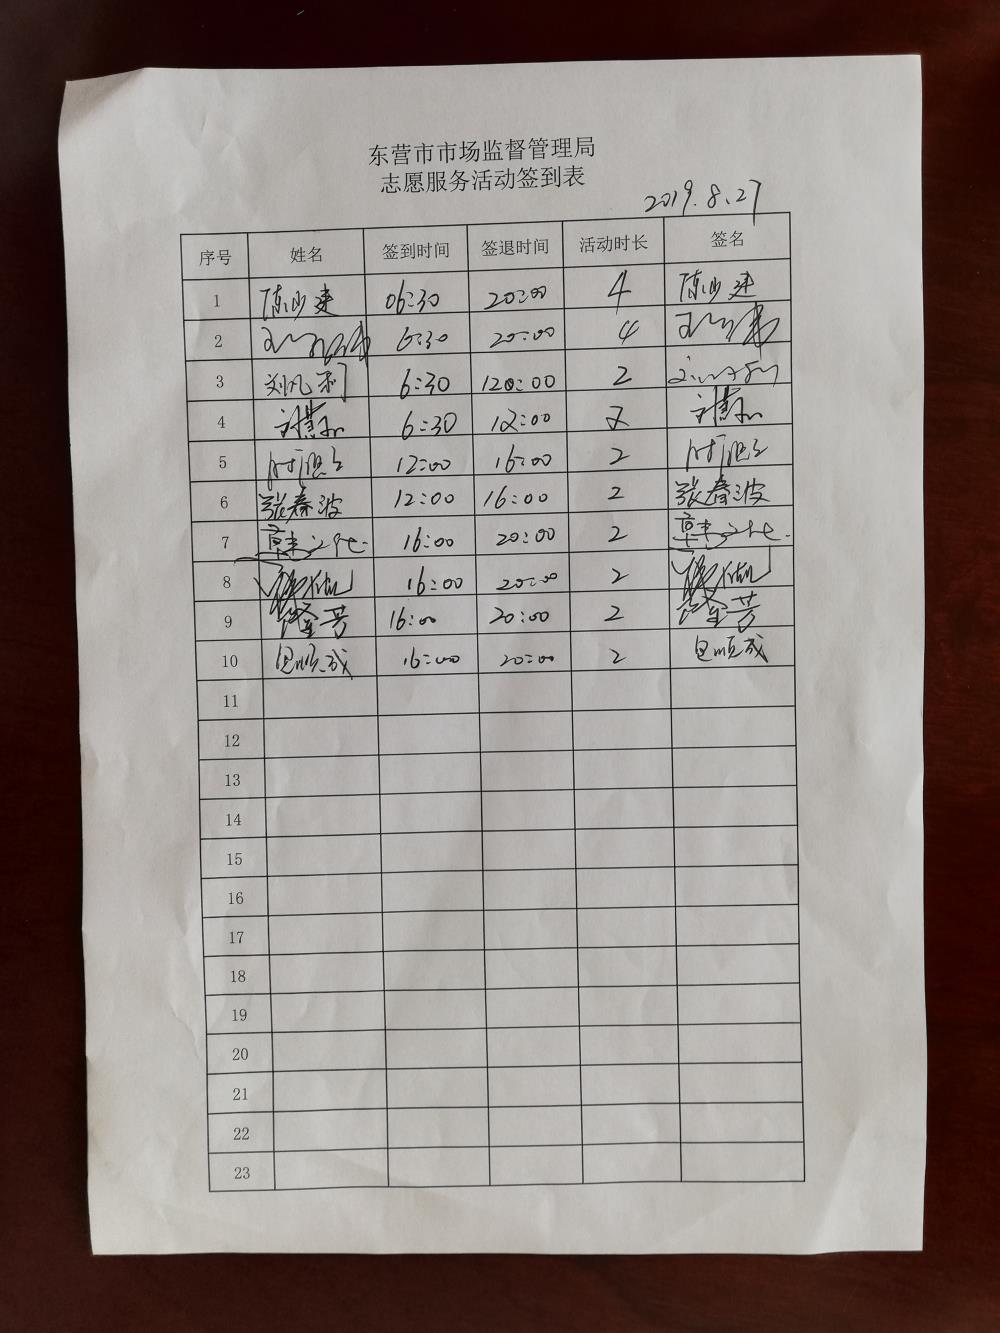 东营市市场监督管理局
志愿服务活动签到表
2019.8.27
序号 姓名 签到时间 签退时间 活动时长 签名
1 06:30 20:00 4
2 6:30 20:00 4
3 刘凡利 6:30 2
4 6:30 12:00 2
5 12:00 16:00 2
6 张春波 12:00 16:00 2 张春波
7 16:00 20:00 2
8 16:00 20:00 2
9 16:00 20:00 2
10 包顺成 16:00 20:00 2 包顺成
11
12
13
14
15
16
17
18
19
20
21
22
23